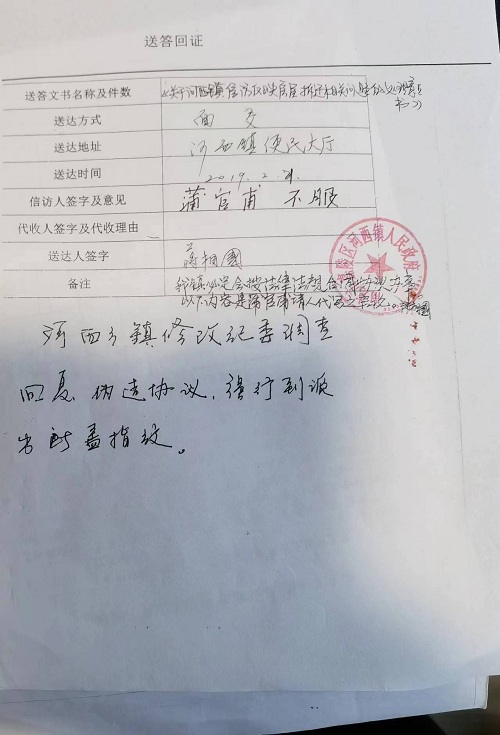 送答回证
送答文书名称及件数 《关于河西镇信访反映房屋拆迁相关问题
送达方式 面交
送达地址 河西镇便民大厅
送达时间 2019.2.21.
信访人签字及意见 蒲官甫 不服
代收人签字及代收理由
送达人签字 蒋相国
备注 我镇必定会按法律法规
以下内容是蒲官甫请人代
区河西镇人民政府
河西乡镇修改纪委调查
回复伪造协议,强行到派
出所盖指纹。